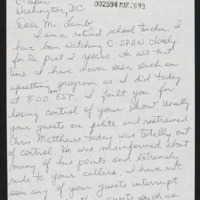 C-Span
Washington, DC
002594 MAR 26 93
Dear Mr Lamb,
I am a retired school teacher. I
have been watching C-SPAN closely
for the past 2 years. In all that
time I have never seen such an
upsetting program as I did today
at 8:00 EST. I fault you for
losing control of your show. Usually
your guests are polite and restrained
Chris Matthews today was totally out
of control. He was misinformed about
many of his points and extremely
rude to your callers. I have not
seen any of your guests interrupt
guests such as